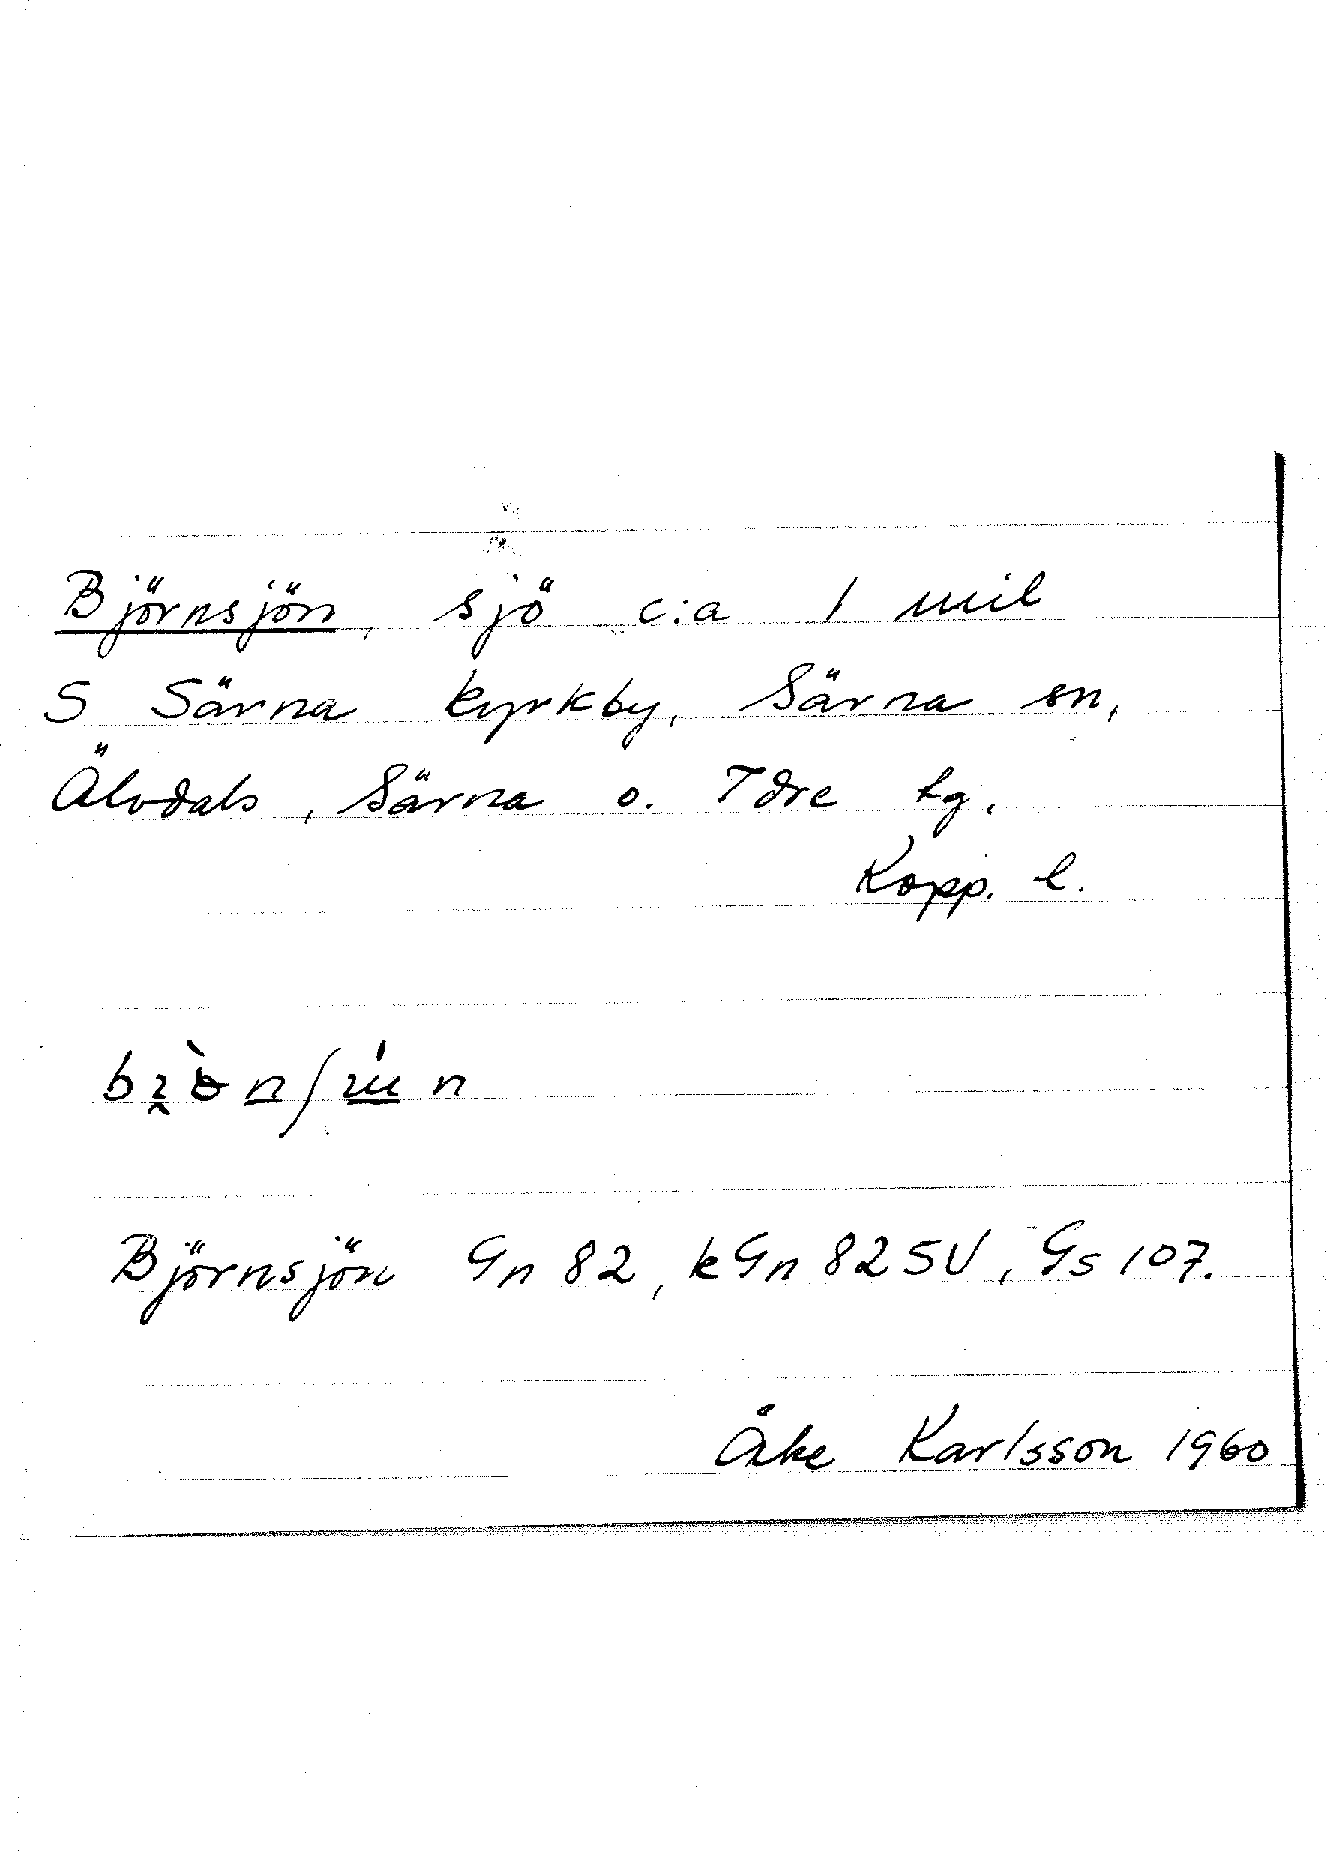 Björnsjön, sjö c:a 1 mil
S Särna kyrkby, Särna sn,
Älvdals, Särna o. Idre tg.
Kopp. l.
Björnsjön Gn 82, kGn 82 SV, Gs 107.
Åke Karlsson 1960